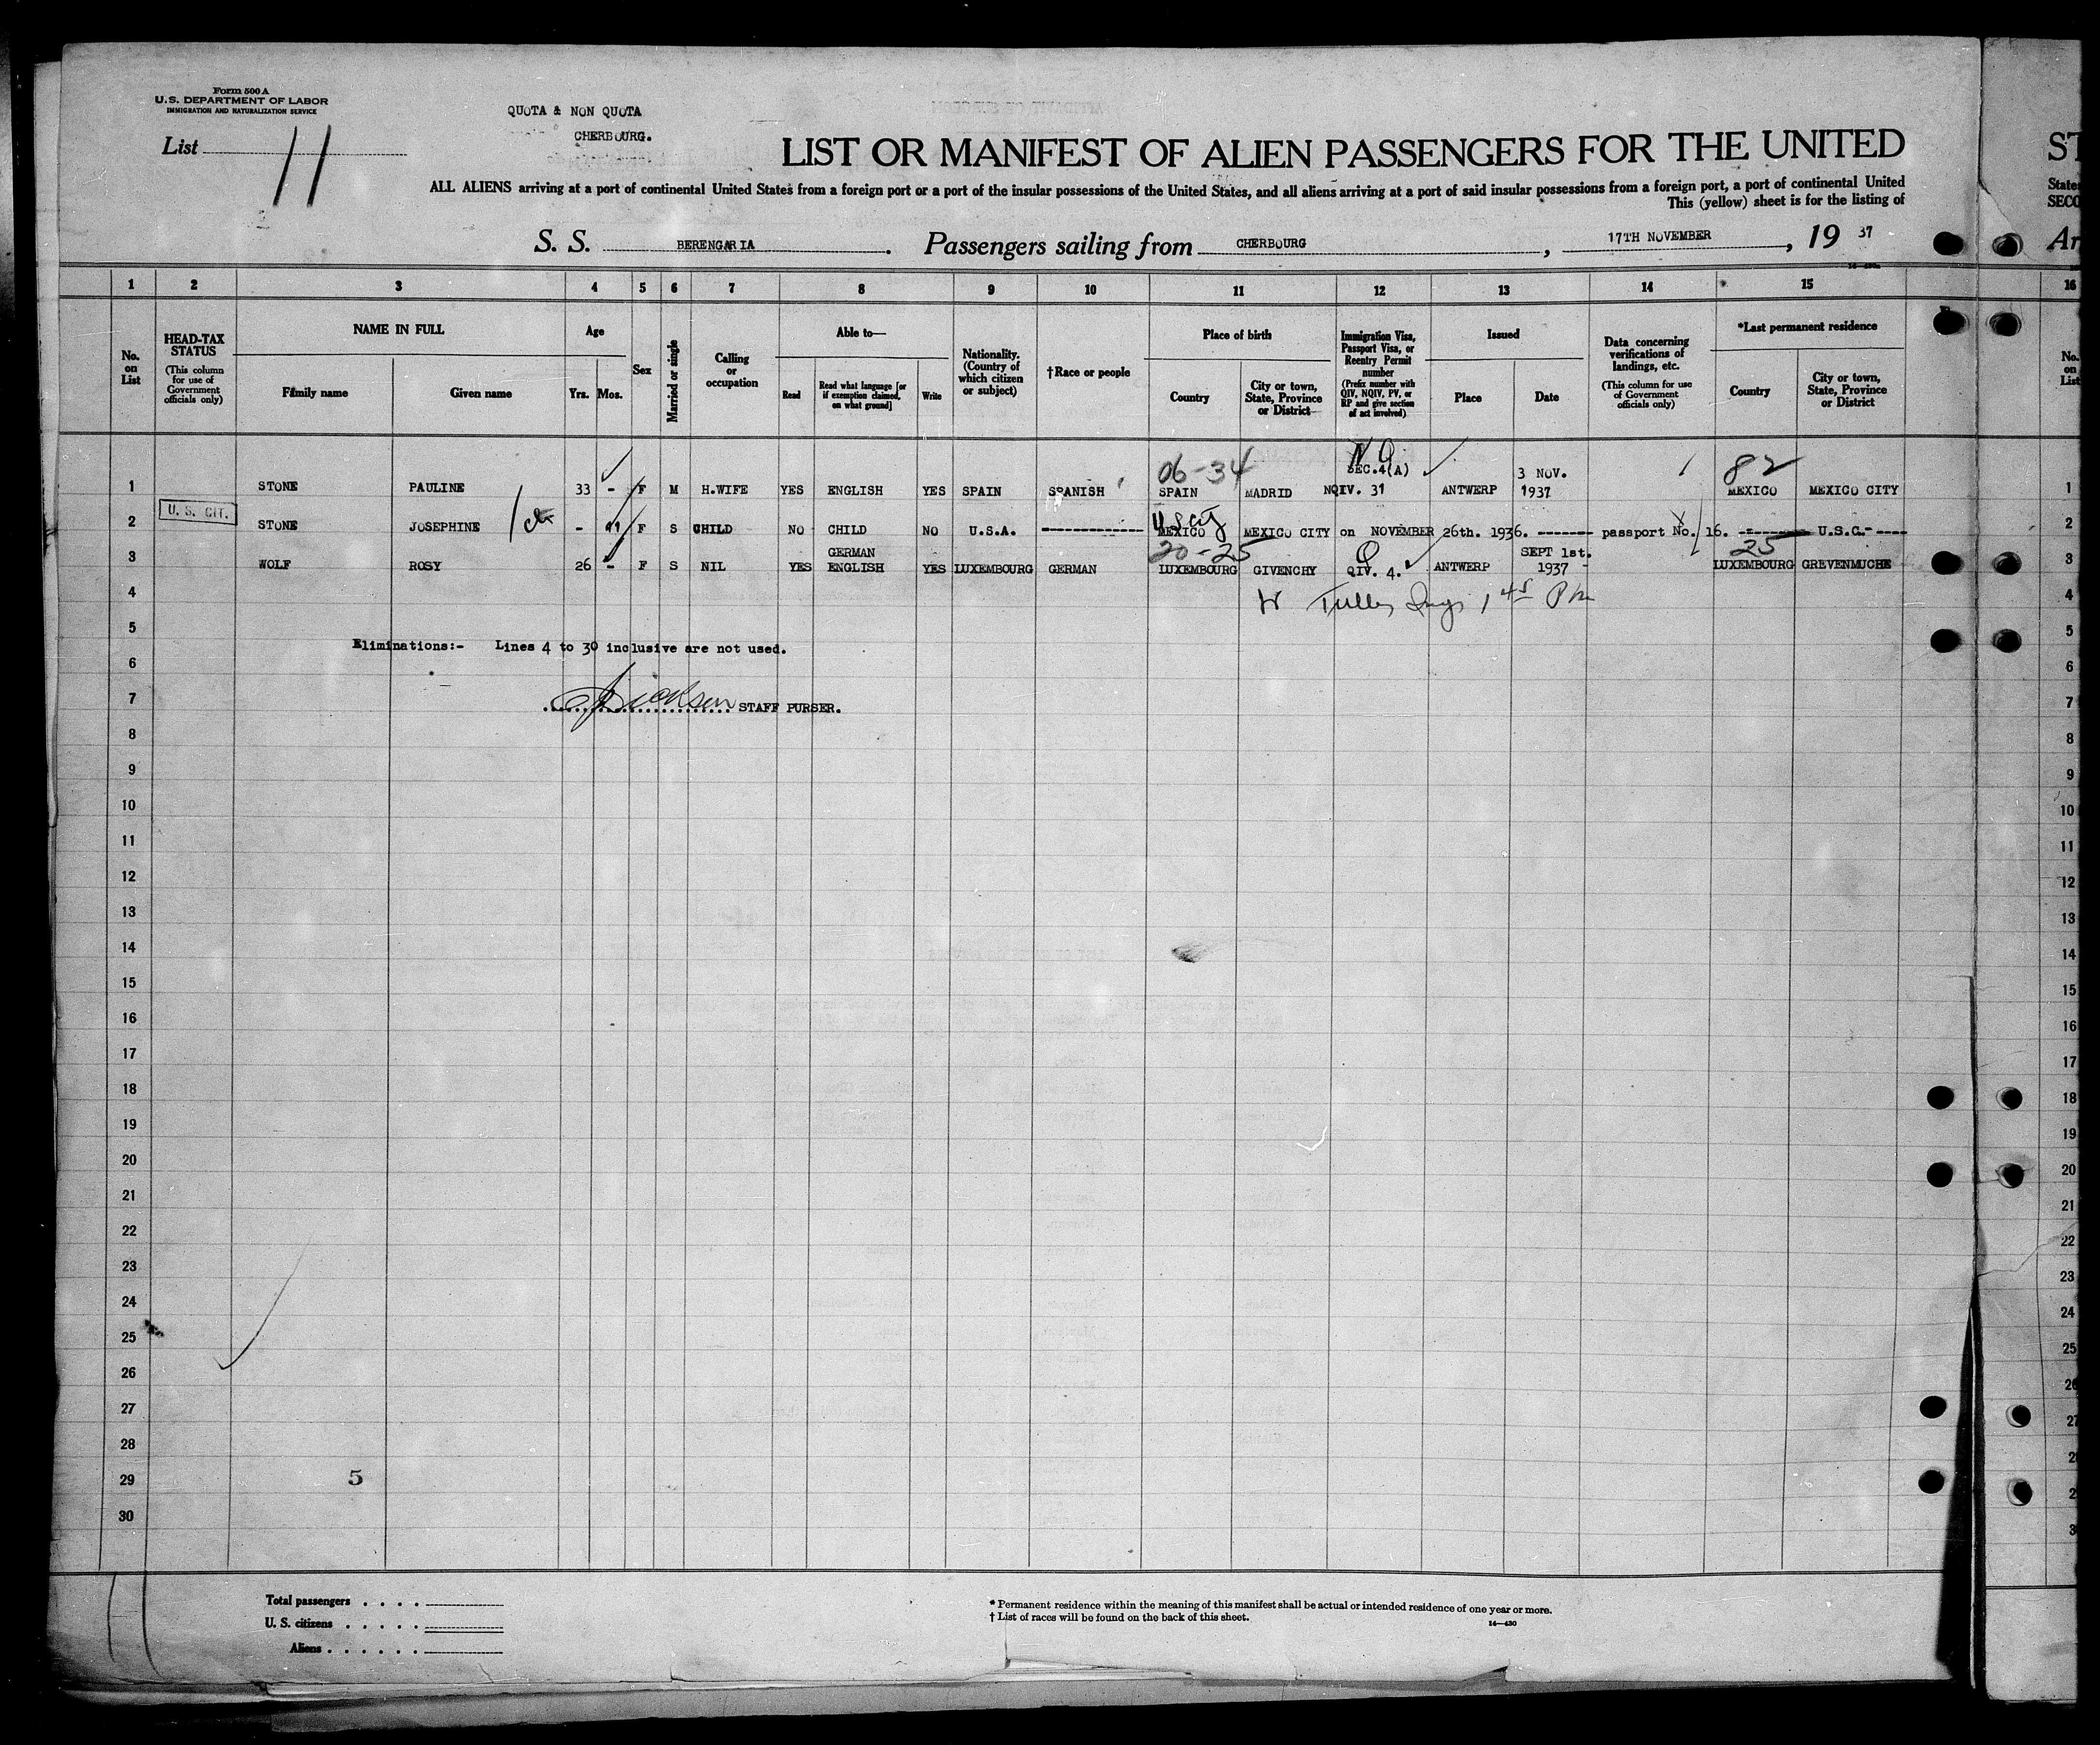 Form 500 A
U.S. DEPARTMENT OF LABOR
IMMIGRATION AND NATURALIZATION SERVICE
List 11
QUOTA & NON QUOTA
CHERBOURG.
LIST OR MANIFEST OF ALIEN PASSENGERS FOR THE UNITED
ST
ALL ALIENS arriving at a port of continental United States from a foreign port or a port of the insular possessions of the United States, and all aliens arriving at a port of said insular possessions from a foreign port, a port of continental United
States
This (yellow) sheet is for the listing of
SECO
S. S. BERENGARIA. Passengers sailing from CHERBOURG, 17TH NOVEMBER, 19 37
Ar
1 2 3 4 5 6 7 8 9 10 11 12 13 14 15 16
No. on List
HEAD-TAX STATUS
(This column for use of Government officials only)
NAME IN FULL
Family name
Given name
Age
Yrs. Mos.
Sex
Married or single
Calling or occupation
Able to—
Read
Read what language [or if exemption claimed, on what ground]
Write
Nationality. (Country of which citizen or subject)
†Race or people
Place of birth
Country
City or town, State, Province or District
Immigration Visa, Passport Visa, or Reentry Permit number
(Prefix number with QIV, NQIV, PV, or RP and give section of act involved)
Issued
Place
Date
Data concerning verifications of landings, etc.
(This column for use of Government officials only)
*Last permanent residence
Country
City or town, State, Province or District
No. on List
06-34 NQ SEC.4(A) 3 NOV. 82
1 STONE PAULINE 33 - F M H.WIFE YES ENGLISH YES SPAIN SPANISH SPAIN MADRID NQIV. 31 ANTWERP 1937 MEXICO MEXICO CITY 1
U. S. CIT.
2 STONE JOSEPHINE - 11 F S CHILD NO CHILD NO U.S.A. ---------- MEXICO MEXICO CITY on NOVEMBER 26th. 1936. ------- passport No. 16. -------- U.S.C.- ---- 2
GERMAN 20-25 Q SEPT 1st. 25
3 WOLF ROSY 26 - F S NIL YES ENGLISH YES LUXEMBOURG GERMAN LUXEMBOURG GIVENCHY QIV. 4. ANTWERP 1937 LUXEMBOURG GREVENMUCHE 3
4 4
5 5
Eliminations:- Lines 4 to 30 inclusive are not used.
6 6
7 STAFF PURSER. 7
8 8
9 9
10 10
11 11
12 12
13 13
14 14
15 15
16 16
17 17
18 18
19 19
20 20
21 21
22 22
23 23
24 24
25 25
26 26
27 27
28 2
29 5 2
30 3
Total passengers . . . .
U. S. citizens . . . . .
Aliens . . . . . .
* Permanent residence within the meaning of this manifest shall be actual or intended residence of one year or more.
† List of races will be found on the back of this sheet.
14—430